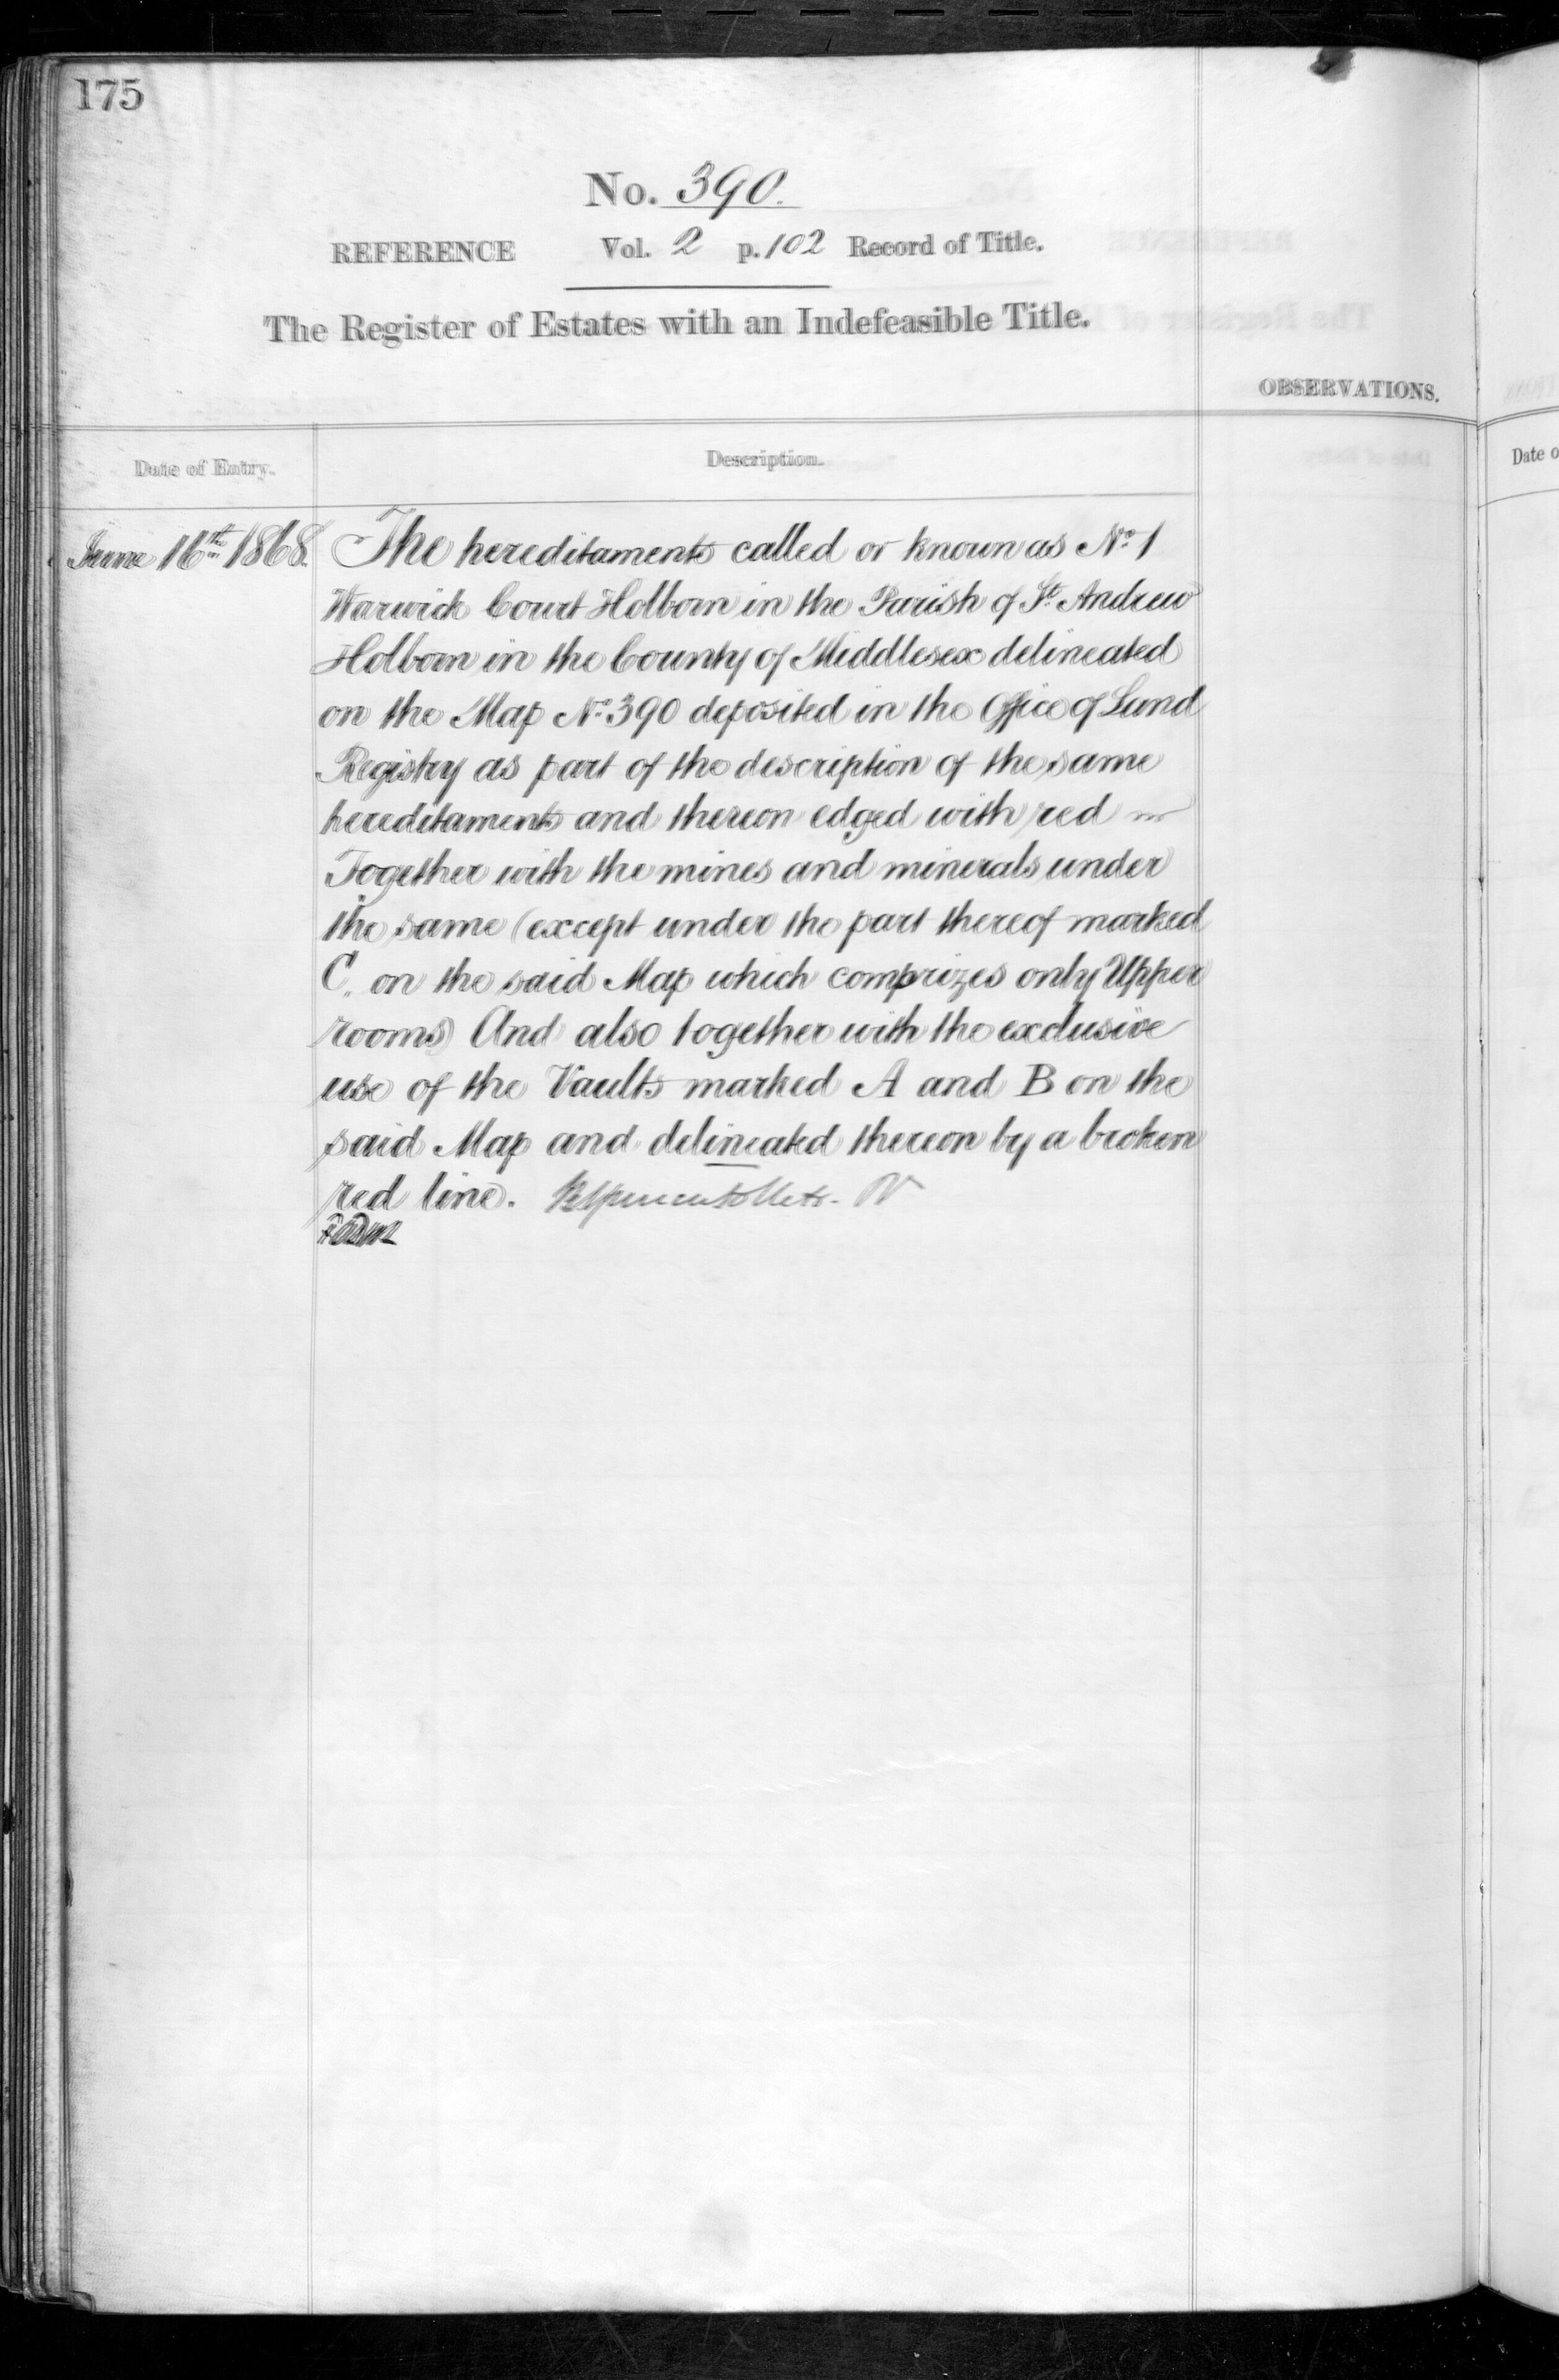 175
No. 390.
REFERENCE Vol. 2 p. 102 Record of Title.
The Register of Estates with an Indefeasible Title.
OBSERVATIONS.
Date of Entry.
Description.
Date o
June 16th 1868.
The hereditaments called or known as No. 1
Warwick Court Holborn in the Parish of St. Andrew
Holborn in the County of Middlesex delineated
on the Map No. 390 deposited in the Office of Land
Registry as part of the description of the same
hereditaments and thereon edged with red
Together with the mines and minerals under
the same (except under the part thereof marked
C. on the said Map which comprizes only Upper
rooms) And also together with the exclusive
use of the Vaults marked A and B on the
said Map and delineated thereon by a broken
red line.